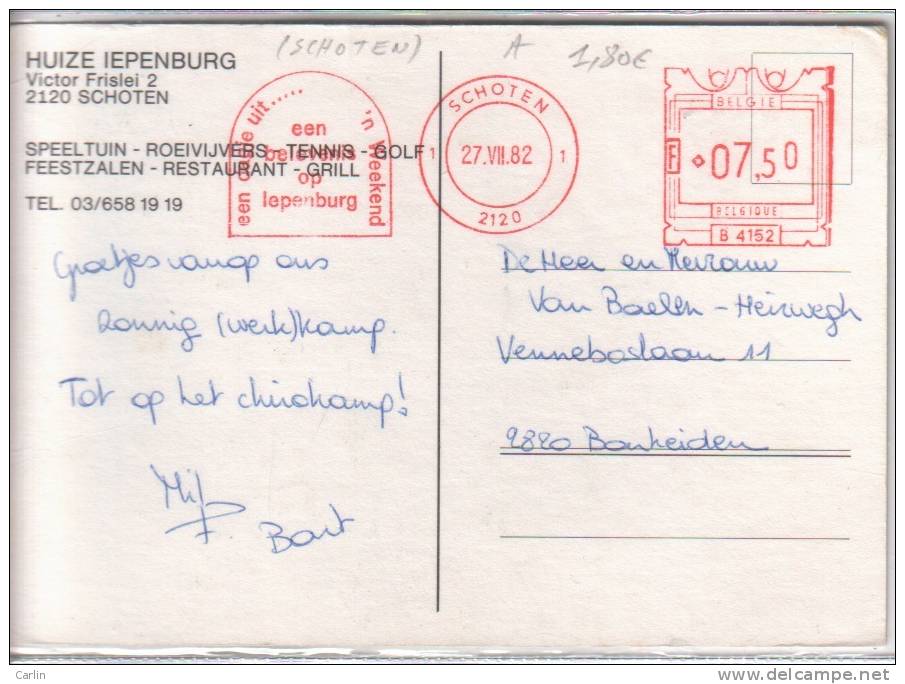 (SCHOTEN) A 1,80€
HUIZE IEPENBURG
Victor Frislei 2
2120 SCHOTEN
SPEELTUIN - ROEIVIJVERS - TENNIS - GOLF
FEESTZALEN - RESTAURANT - GRILL
TEL. 03/658 19 19
een dagje uit.....
'n Weekend
een
belevenis
op
Iepenburg
SCHOTEN
1 27.VII.82 1
2120
BELGIE
F 07,50
BELGIQUE
B 4152
Groetjes vanop ons
zonnig (werk)kamp.
Tot op het chirokamp!
Bart
De Heer en Mevrouw
Van Baelen - Heirwegh
Venneboslaan 11
2820 Bonheiden
Carlin
www.delcampe.net